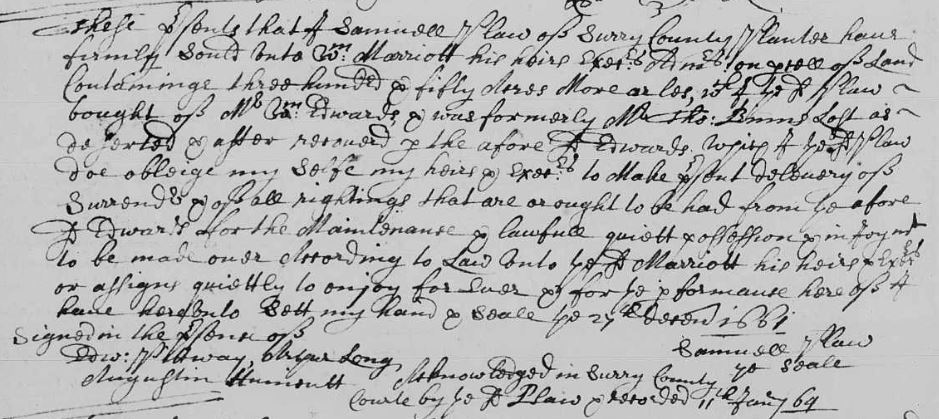 these p̲sents that I Samuell Plaw off Surry County Planter haue
firmly sould vnto Wm: Marriott his heirs Exec:rs Adm:s on p̲sell off Land
Containinge three hundred & fifty Acres More or les, wch I ye sd Plaw
bought off Mr Wm: Edwards, & was formerly Mr Tho: Binns Lost as
deserted & after recouerd p̲ the afore sd Edwards, which I ye sd Plaw
doe obleige my selfe my heirs & Exec:rs to Make p̲sent deleuery off
Surrendr & off all rightings that are or ought to be had from ye afore
sd Edwards for the Maintenanse & lawfull quiett possession & inioymt
to be made ouer According to Law vnto ye sd Marriott his heirs & Exec:rs
or assigns quiettly to enjoy for Euer & for ye p̲formanse here off I
haue herevnto Sett my hand & Seale ye 27th Decem 1661
Signed in the p̲sense off
Samuell Plaw
Edw: Pettway, Arthur Long
ye Seale
Augustin Hunnicutt
Acknowledged in Surry County
Courte by ye sd Plaw & recorded 11th Janry 64